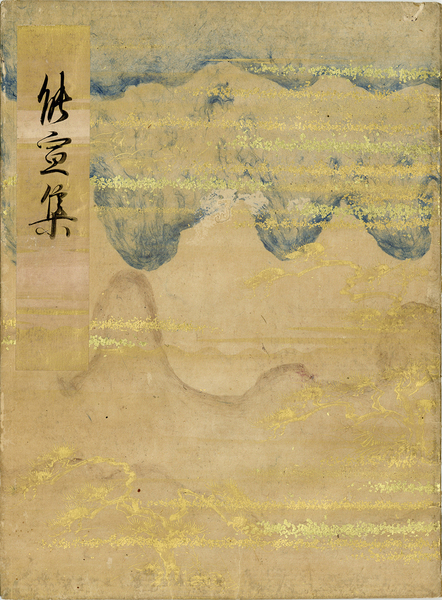 能宣集